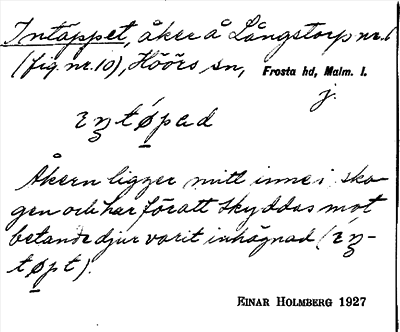 Intäppet, åker å Långstorp nr. 6
(fig. nr. 10), Höörs sn, Frosta hd, Malm. l.
j.
Åkern ligger mitt inne i sko-
gen och har för att skyddas mot
betande djur varit inhägnad
EINAR HOLMBERG 1927